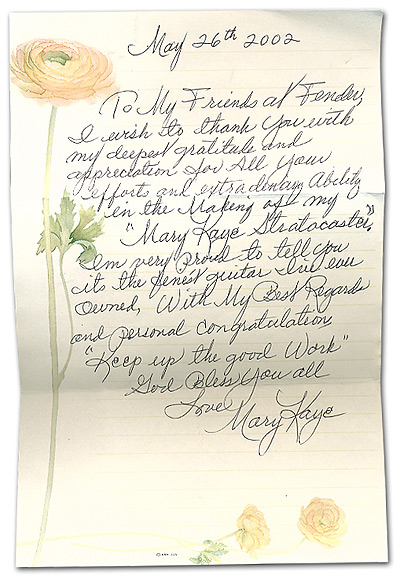 May 26th 2002
To My Friends at Fender,
I wish to thank you with
my deepest gratitude and
appreciation for All your
efforts and extradinary Ability
in the Making of my
"Mary Kaye Stratocaster".
I'm very proud to tell you
its the finest guitar I've ever
Owned, With My Best Regards
and personal congratulation,
"Keep up the good Work"
God Bless You all
Love
Mary Kaye